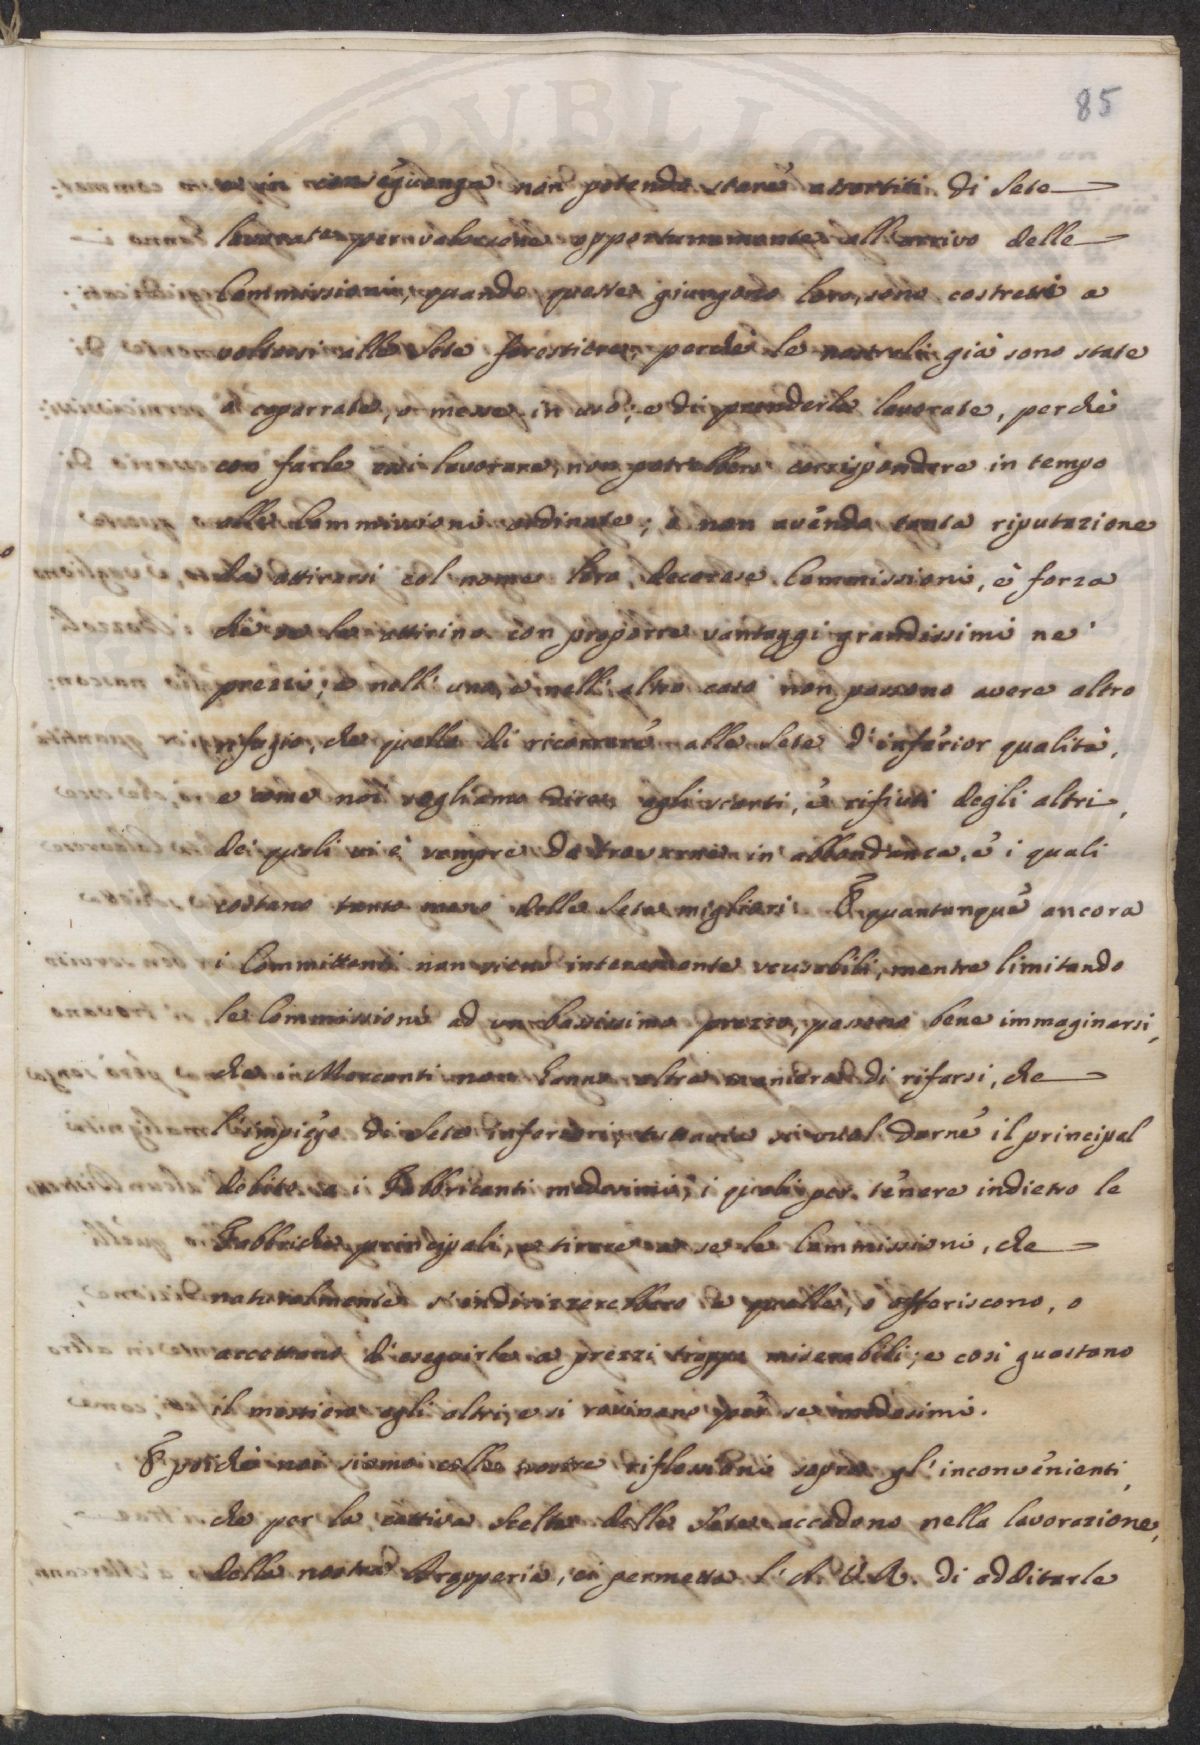 85
in conseguenza non potendo stare assortiti di Sete
lavorate per valersene opportunamente all'arrivo delle
Commissioni, quando queste giungono loro, sono costretti a
voltarsi alle Sete forestiere, perchè le nostrali già sono state
o caparrate, o messe in uso; e di prenderle lavorate, perchè
con farle essi lavorare, non potrebbero corrispondere in tempo
alle Commissioni ordinate; o non avendo tanta riputazione
da attirarsi col nome loro decorose Commissioni, è forza
che se le attirino con proporre vantaggi grandissimi ne'
prezzi; e nell'uno, e nell'altro caso non possono avere altro
rifugio, che quello di ricorrere alle Sete d'inferior qualità,
e come noi vogliamo dire agli scarti, e rifiuti degli altri,
dei quali vi è sempre da trovarne in abbondanza, e i quali
costano tanto meno delle Sete migliori. E quantunque ancora
i Committenti non sieno interamente scusabili, mentre limitando
le Commissioni ad un bassissimo prezzo, possono bene immaginarsi,
che i Mercanti non hanno altra maniera di rifarsi, che
l'impiego di Sete inferiori, tuttavia si vuol darne il principal
debito a i Fabbricanti medesimi, i quali per tenere indietro le
Fabbriche principali, e tirare a se le Commissioni, che
naturalmente s'indirizzerebbero a quelle, o offeriscono, o
accettano d'eseguirle a prezzi troppo miserabili; e così guastano
il mestiero agli altri, e si rovinano per se medesimi.
E poichè noi siamo colle nostre riflessioni sopra gl'inconvenienti,
che per la cattiva scelta delle Sete accadono nella lavorazione
delle nostre Drapperie, ci permetta l'A. V. R. di additarle